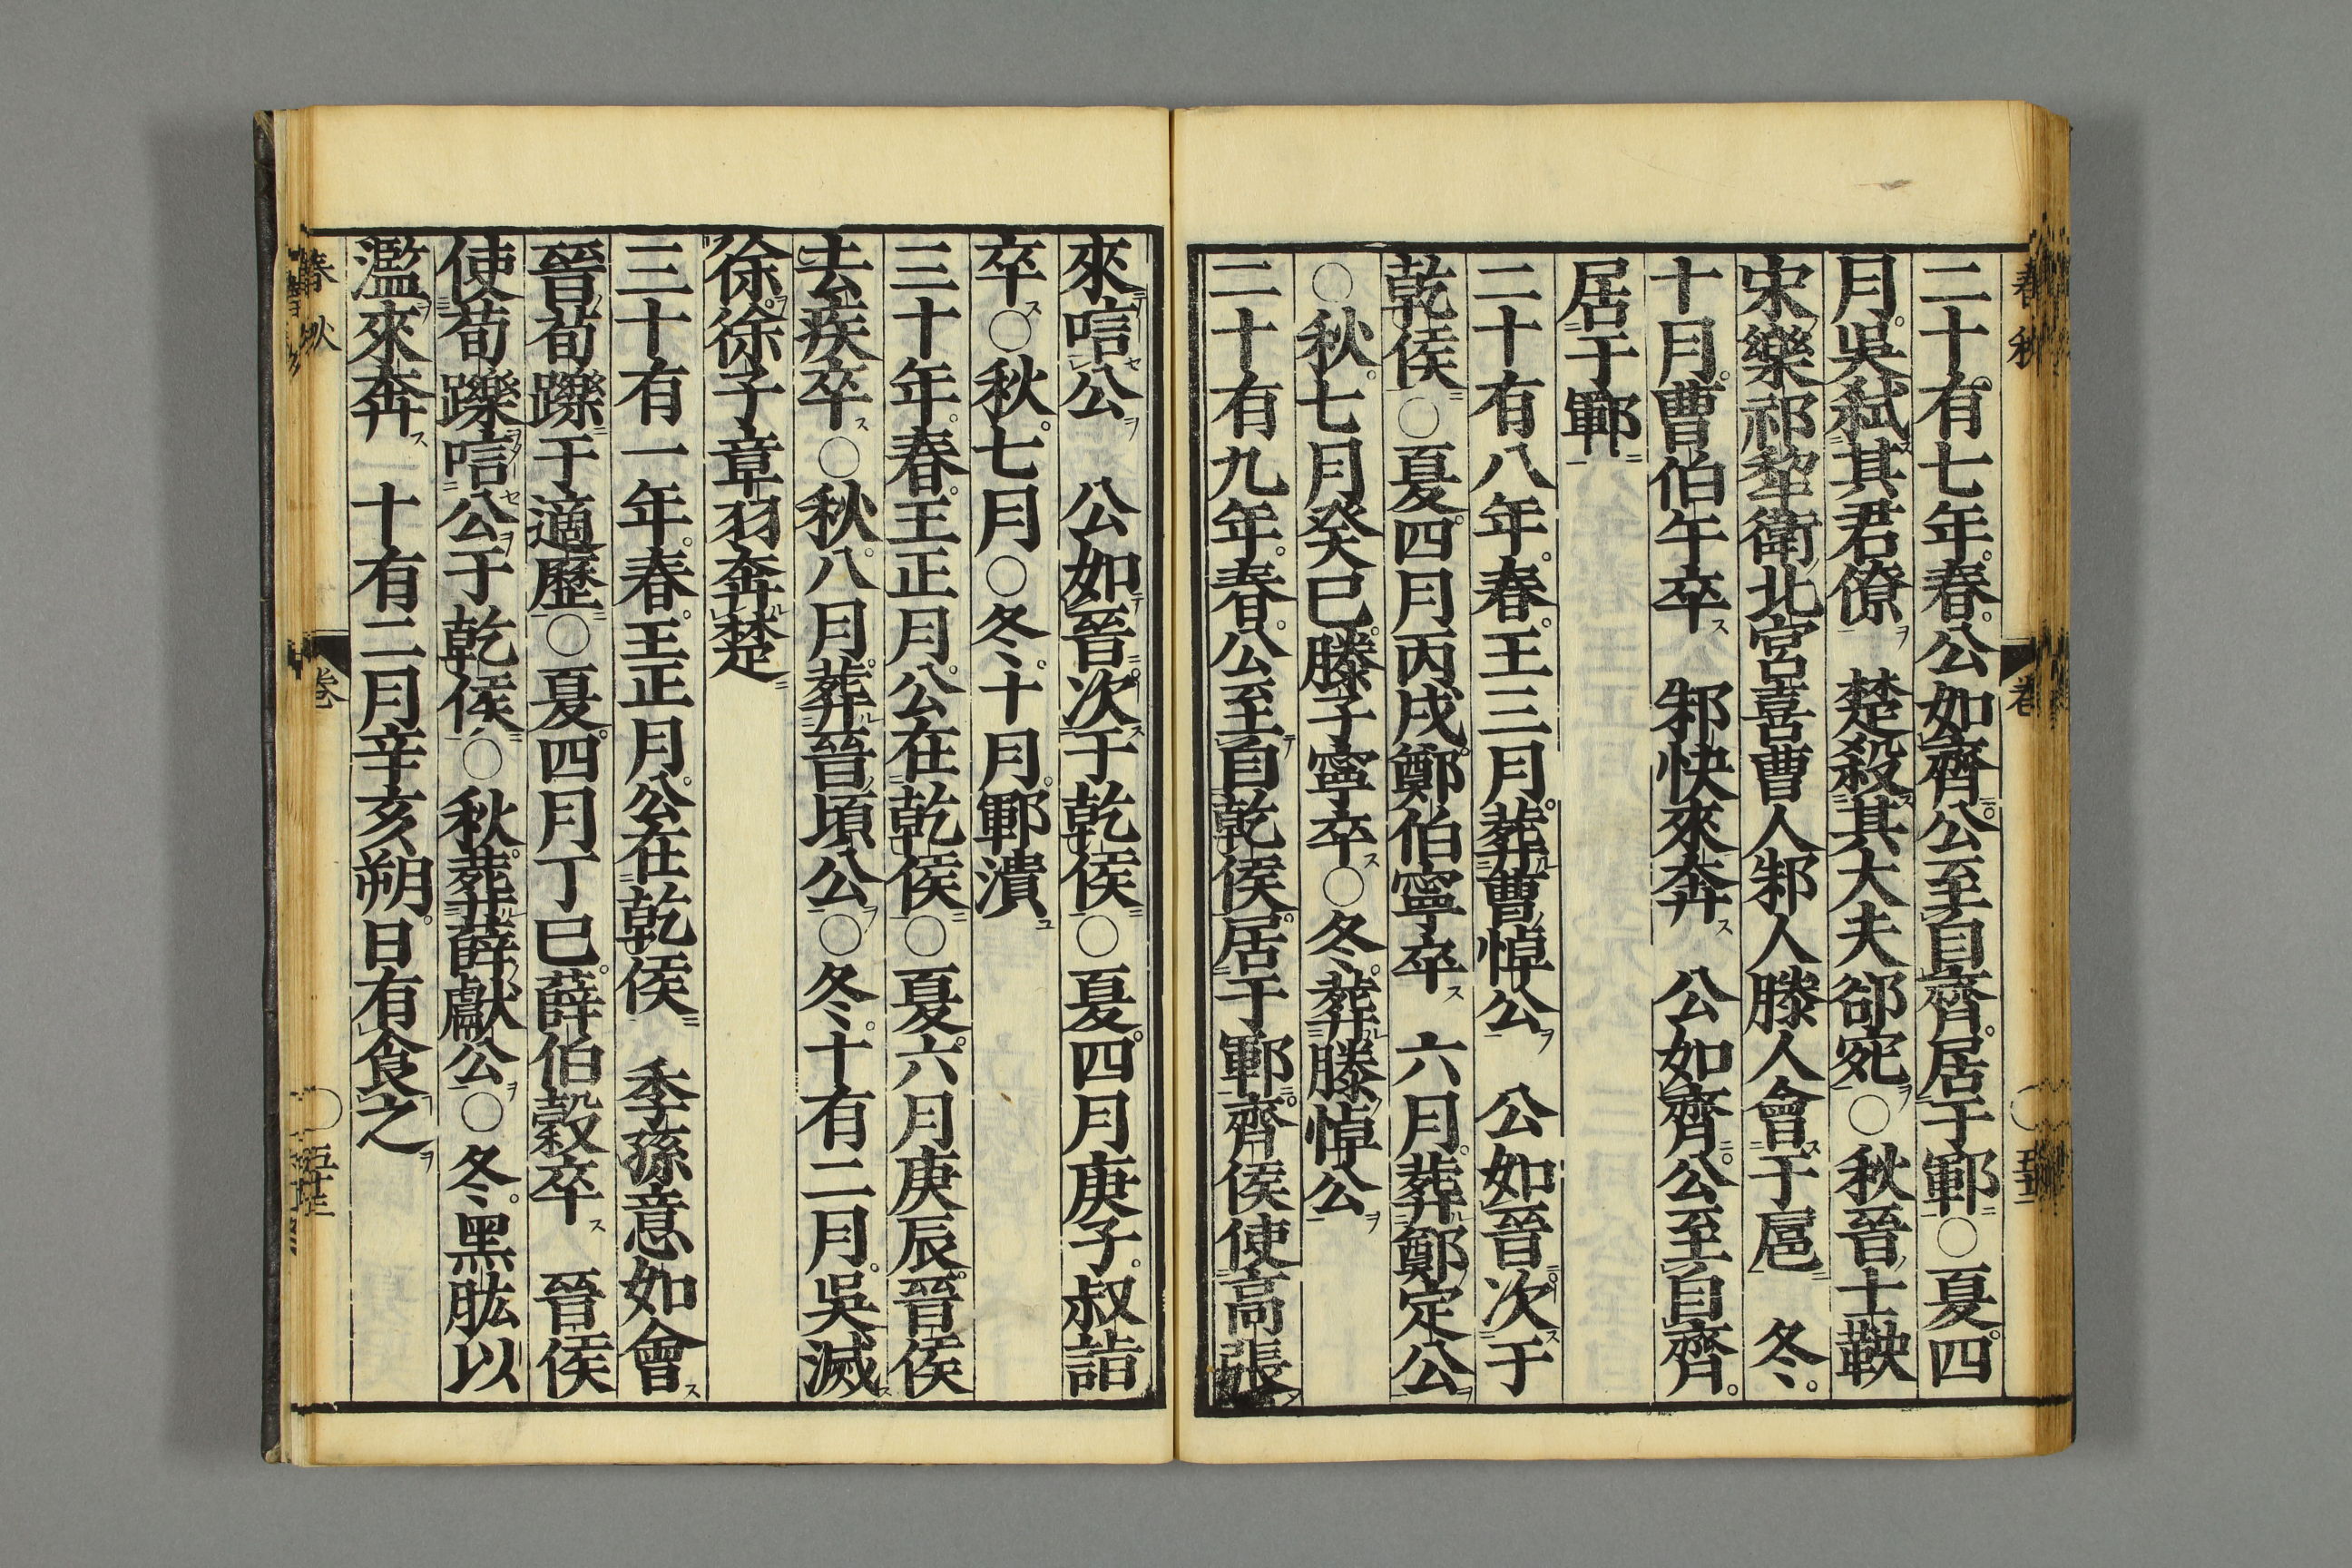 春秋
卷
二十有七年春公如齊公至自齊居于鄆○夏四
月吳弑其君僚 楚殺其大夫郤宛○秋晉士鞅
宋樂祁犂衛北宮喜曹人邾人滕人會于扈 冬
十月曹伯午卒 邾快來奔 公如齊公至自齊
居于鄆
二十有八年春王三月葬曹悼公 公如晉次于
乾侯○夏四月丙戌鄭伯寧卒 六月葬鄭定公
○秋七月癸巳滕子寧卒○冬葬滕悼公
二十有九年春公至自乾侯居于鄆齊侯使高張
來唁公 公如晉次于乾侯○夏四月庚子叔詣
卒○秋七月○冬十月鄆潰
三十年春王正月公在乾侯○夏六月庚辰晉侯
去疾卒○秋八月葬晉頃公○冬十有二月吳滅
徐徐子章羽奔楚
三十有一年春王正月公在乾侯 季孫意如會
晉荀躒于適歷○夏四月丁巳薛伯穀卒 晉侯
使荀躒唁公于乾侯○秋葬薛獻公○冬黑肱以
濫來奔 十有二月辛亥朔日有食之
春秋
卷